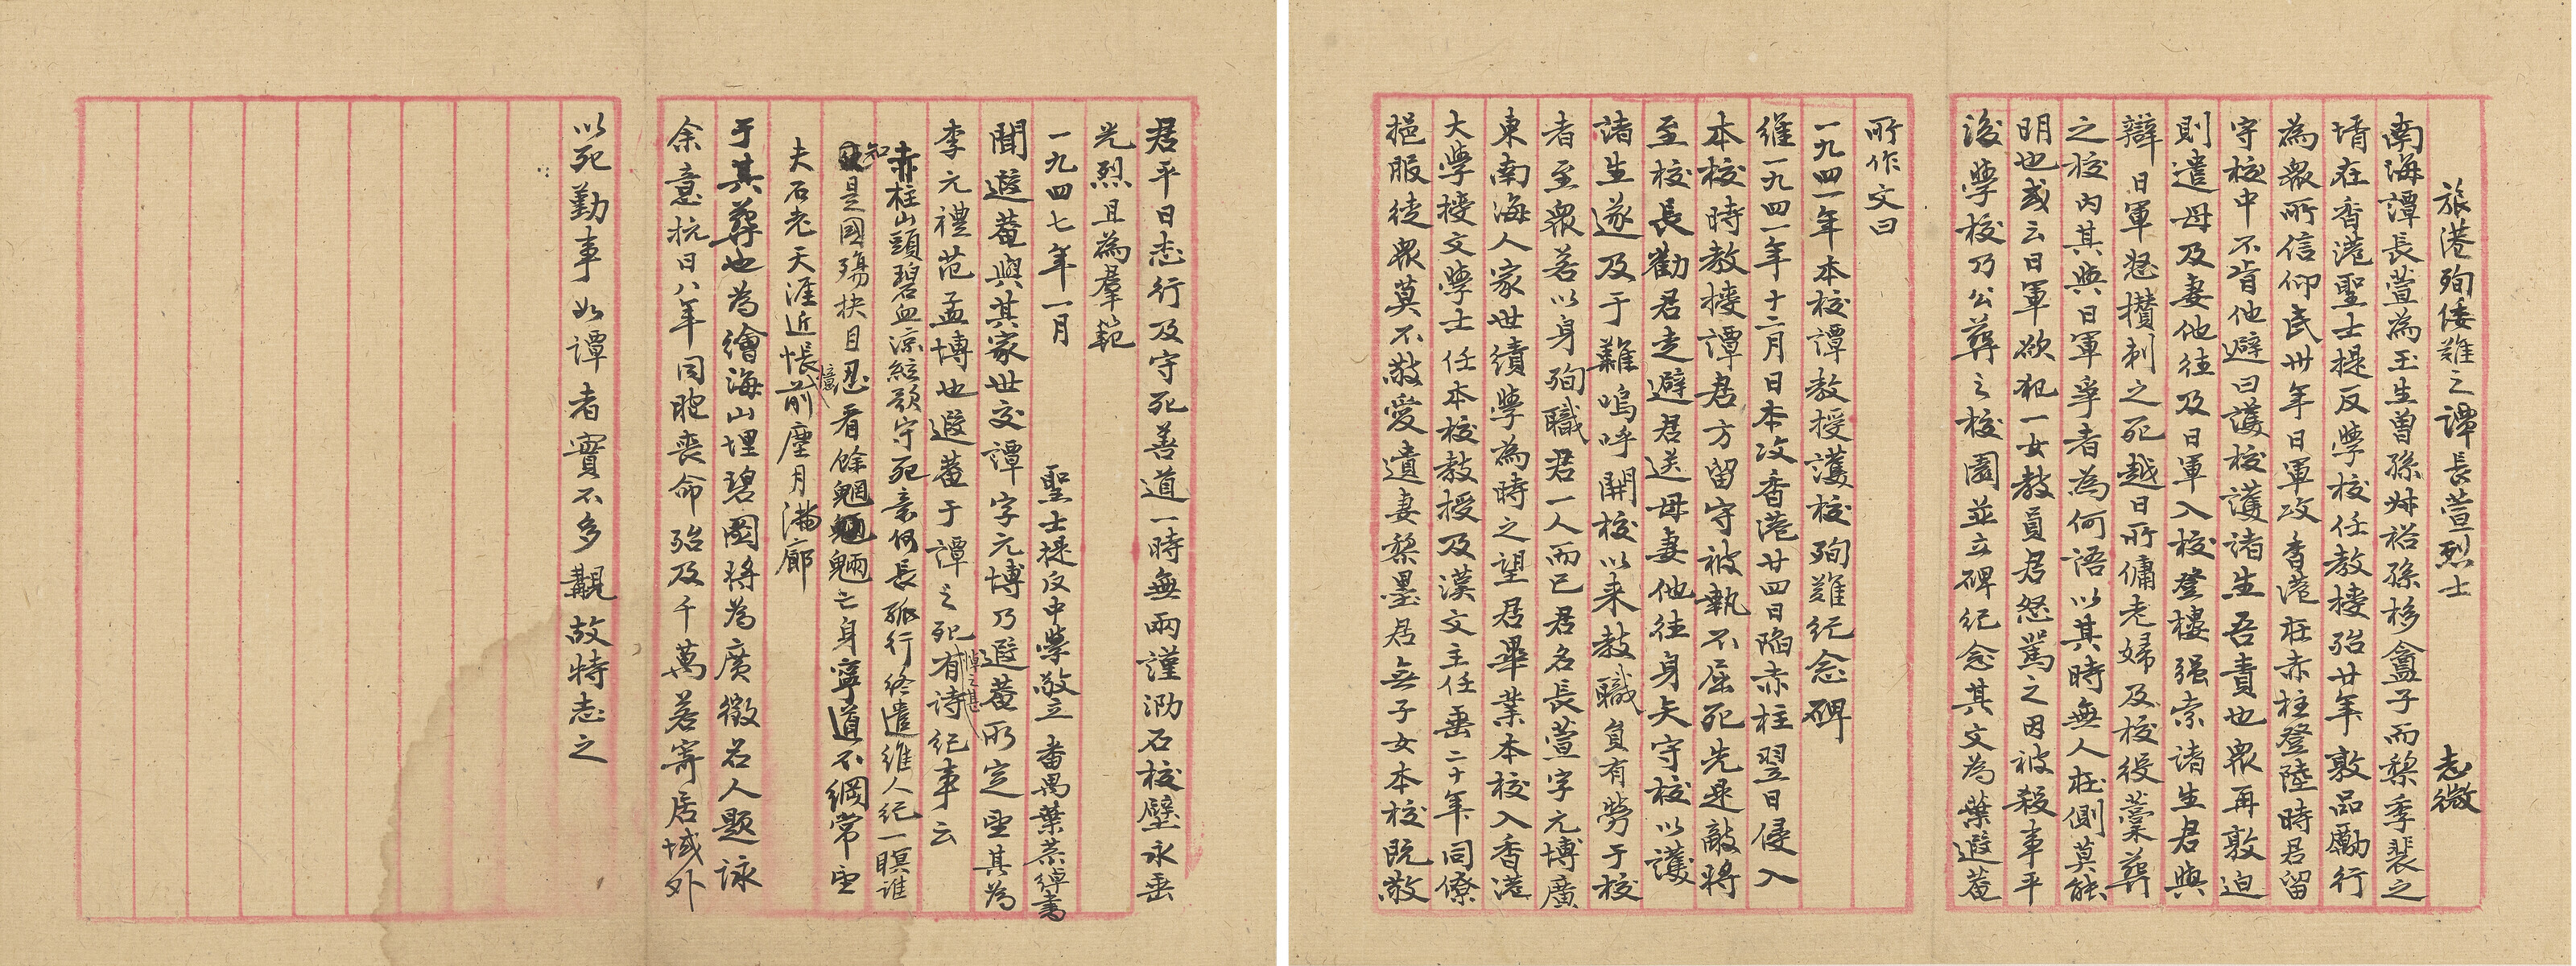 旅港殉倭難之譚長萱烈士　志微
南海譚長萱為玉生曾孫叔裕孫移盦子而黎季裴之
壻在香港聖士提反學校任教授殆廿年敦品勵行
為眾所信仰民卅年日軍攻香港在赤柱登陸時君留
守校中不肯他避曰護校護諸生吾責也眾再敦迫
則遣母及妻他往及日軍入校登樓强索諸生君與
辯日軍怒攢刺之死越日所傭老婦及校役藁葬
之校內其與日軍爭者為何語以其時無人在側莫能
明也或云日軍欲犯一女教員君怒罵之因被殺事平
後學校乃公葬之校園並立碑紀念其文為葉遐菴
所作文曰
一九四一年本校譚教授護校殉難紀念碑
維一九四一年十二月日本攻香港廿四日陷赤柱翌日侵入
本校時教授譚君方留守被執不屈死先是敵將
至校長勸君走避君送母妻他往身矢守校以護
諸生遂及于難嗚呼開校以來教職員有勞于校
者至眾若以身殉職君一人而已君名長萱字元博廣
東南海人家世績學為時之望君畢業本校入香港
大學授文學士任本校教授及漢文主任垂二十年同僚
挹服徒眾莫不敬愛遺妻黎墨君無子女本校既敬
君平日志行及守死善道一時無兩謹泐石校壁永垂
光烈且為羣範
一九四七年一月　聖士提反中學敬立　番禺葉恭綽書
聞遐菴與其家世交譚字元博乃遐菴所定望其為
李元禮范孟博也遐菴于譚之死悼之甚有詩紀事云
赤柱山頭碧血涼絃歌守死意何長孤行終遣維人紀一瞑誰
知是國殤抉目忍看餘魍魎亡身寧道不綱常望
夫石老天涯近悵憶前塵月滿廊
于其葬也為繪海山埋碧圖將為廣徵名人題詠
余意抗日八年同胞喪命殆及千萬若寄居域外
以死勤事如譚者實不多覯故特志之